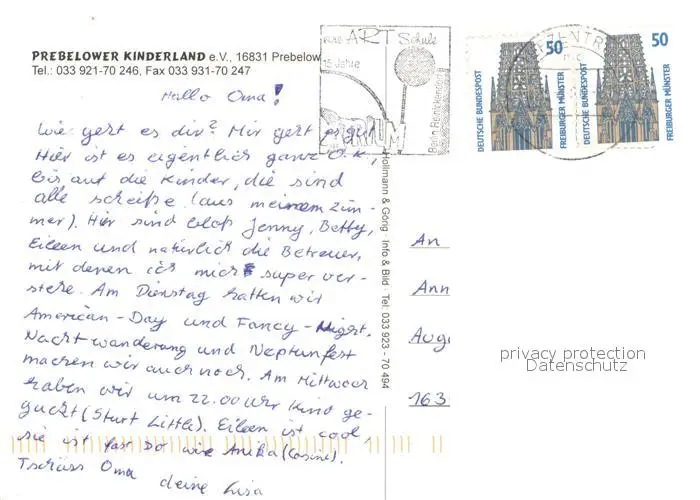 PREBELOWER KINDERLAND e.V., 16831 Prebelow
Tel.: 033 921-70 246, Fax 033 931-70 247
Hallo Oma!
Wie geht es dir? Mir geht es gut
Hier ist es eigentlich ganz O.K,
bis auf die Kinder, die sind
alle scheiße (aus meinem Zim-
mer). Hier sind bloß Jenny, Betty,
Eileen und natürlich die Betreuer,
mit denen ich mich super ver-
stehe. Am Dienstag hatten wir
American-Day und Fancy-Night.
Nachtwanderung und Neptunfest
machen wir auch noch. Am Mittwoch
haben wir um 22.00 Uhr Kino ge-
guckt (Sturt Little). Eileen ist cool,
sie ist fast so wie Anika (Cosine).
Tschüss Oma
deine Lisa
ART Schule
15 Jahre
Berlin-Reinickendorf
50
DEUTSCHE BUNDESPOST
FREIBURGER MÜNSTER
50
DEUTSCHE BUNDESPOST
FREIBURGER MÜNSTER
Hollmann & Görig · Info & Bild · Tel: 033 923 - 70 494
An
Ann
Aug
163
privacy protection
Datenschutz